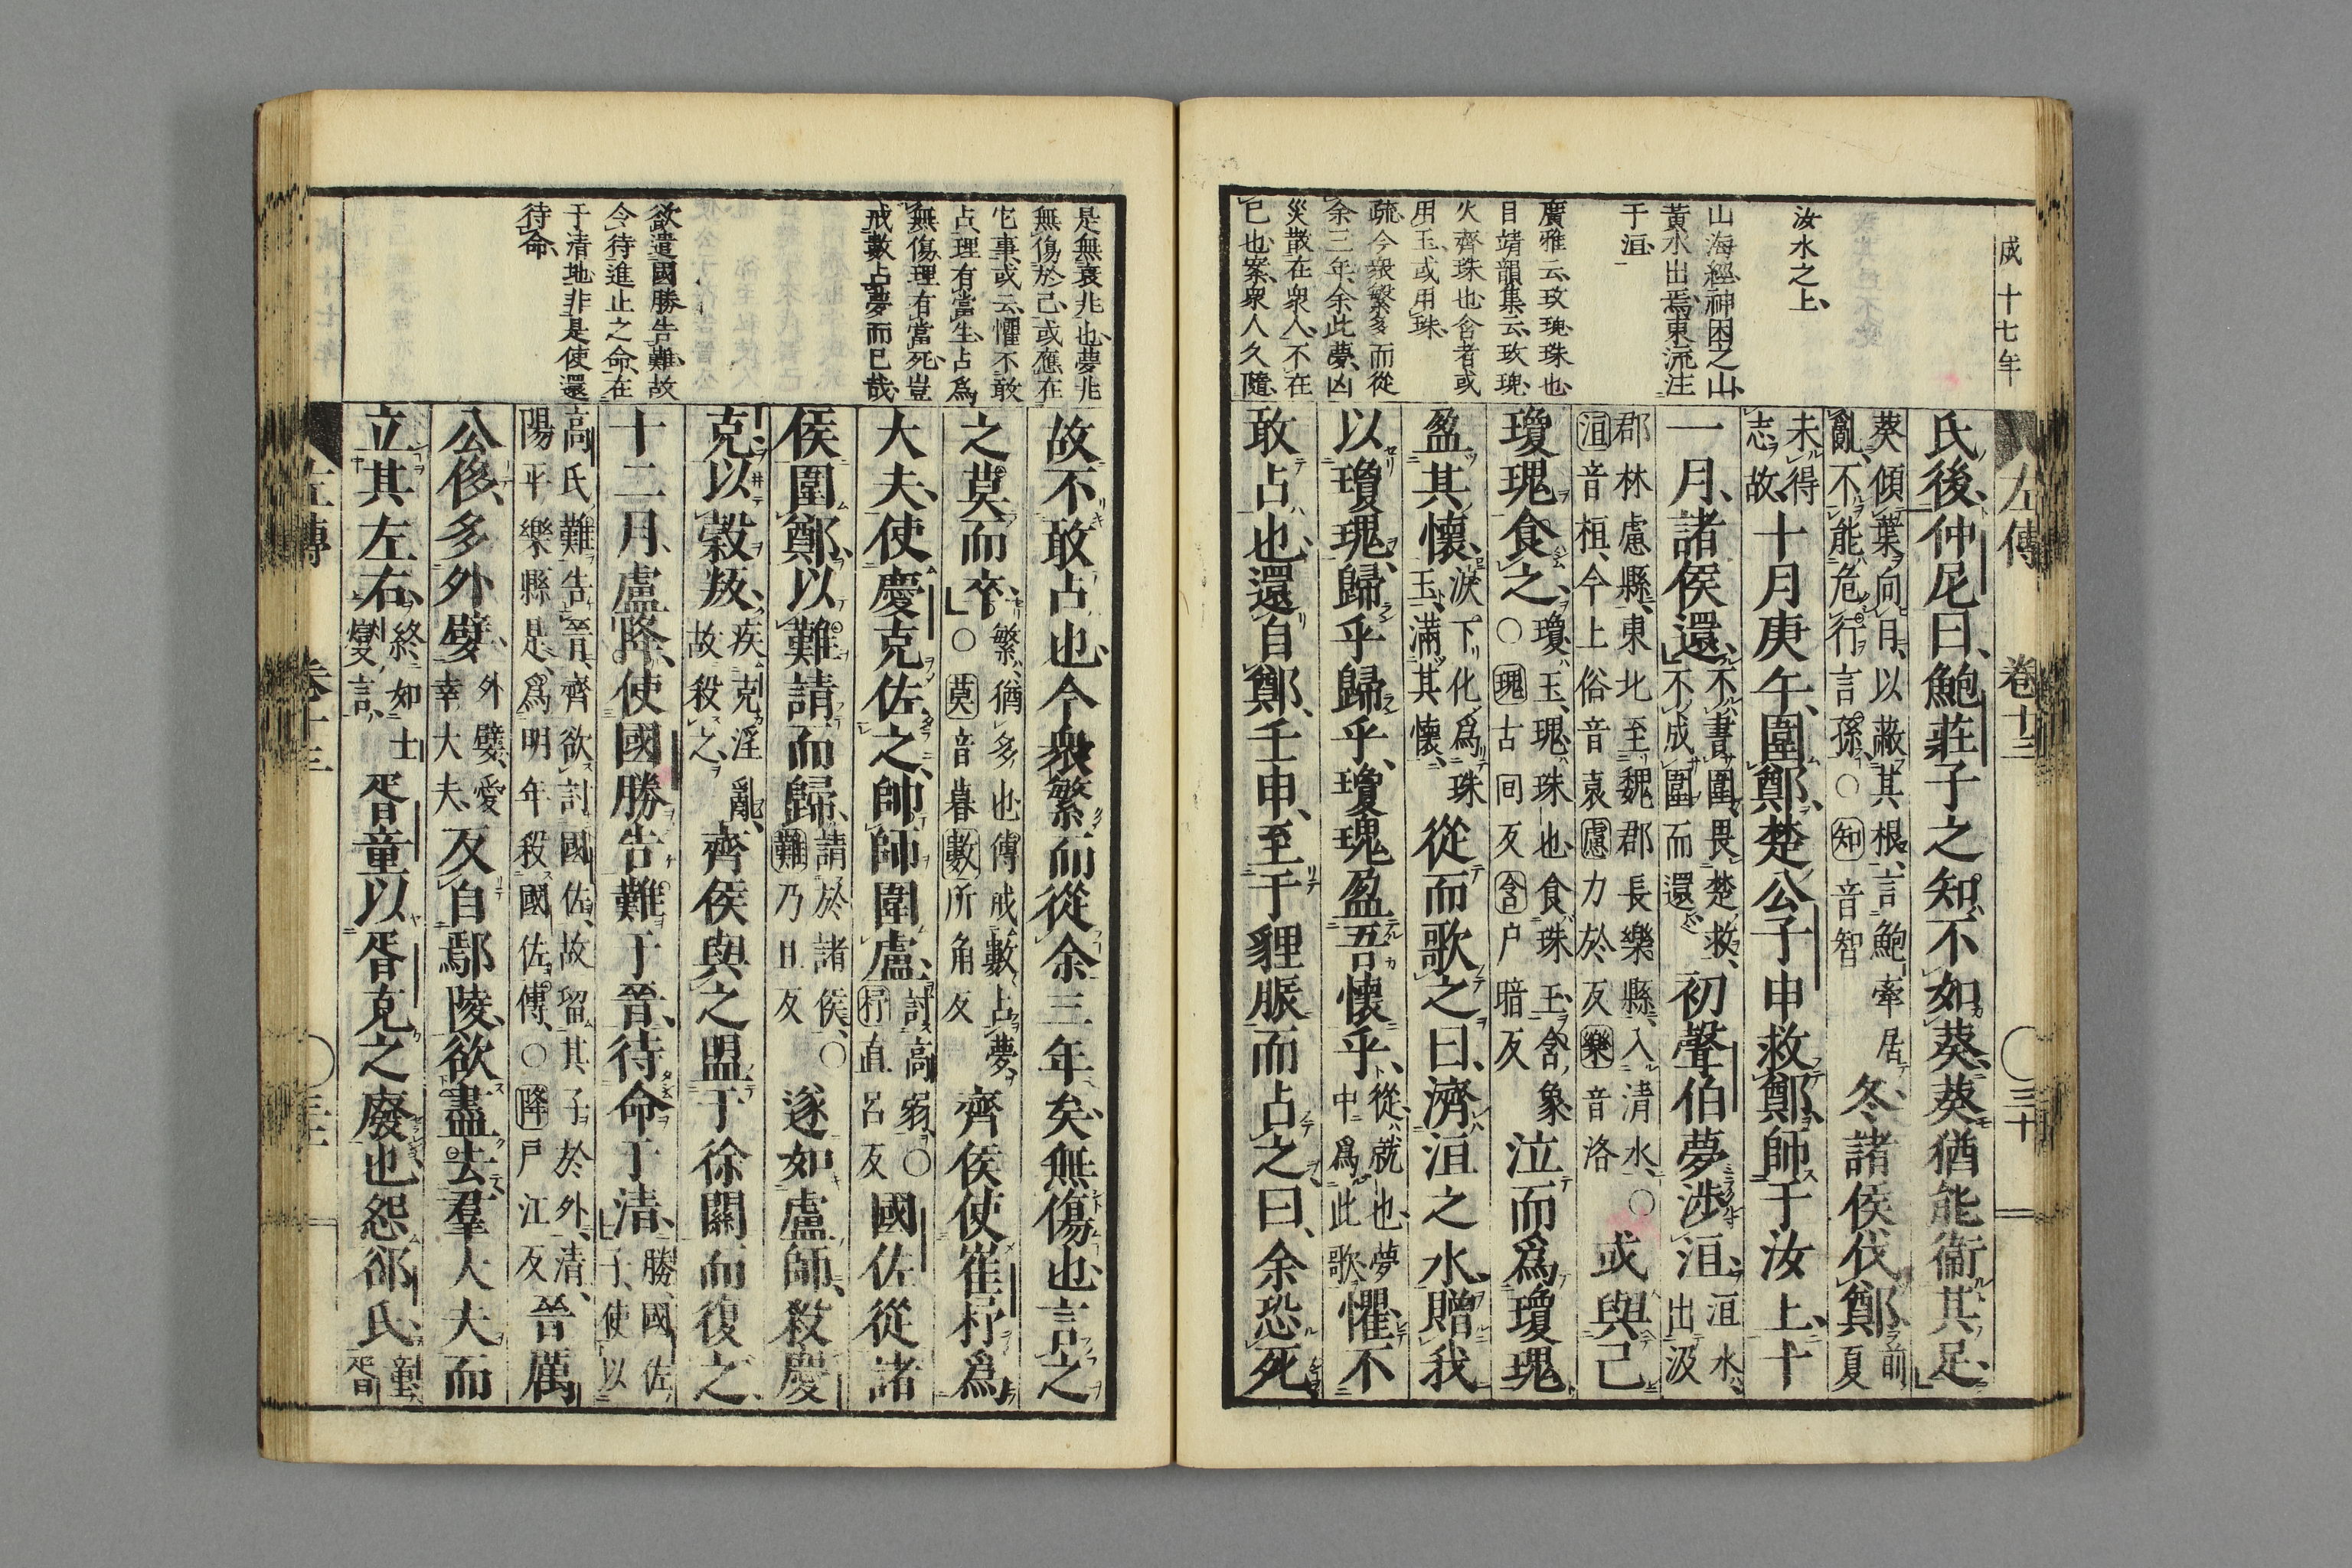 成十七年
左傳 卷十三 三十
汝水之上
山海經神囷之山
黃水出焉東流注
于洹
廣雅云玫瑰珠也
目靖韻集云玫瑰
火齊珠也含者或
用玉或用珠
疏今衆繁多而從
余三年余此夢凶
災散在衆人不在
己也案衆人久隨
氏後仲尼曰鮑莊子之知不如葵葵猶能衞其足
葵傾葉向日以蔽其根言鮑牽居亂不能危行言孫○知音智冬諸侯伐鄭前夏
未得志故十月庚午圍鄭楚公子申救鄭師于汝上十
一月諸侯還不書圍畏楚救不成圍而還初聲伯夢涉洹洹水出汲
郡林慮縣東北至魏郡長樂縣入清水○洹音桓今土俗音袁慮力於反樂音洛或與己
瓊瑰食之瓊玉瑰珠也食珠玉含象○瑰古回反含户暗反泣而爲瓊瑰
盈其懷淚下化爲珠玉滿其懷從而歌之曰濟洹之水贈我
以瓊瑰歸乎歸乎瓊瑰盈吾懷乎從就也夢中爲此歌懼不
敢占也還自鄭壬申至于貍脤而占之曰余恐死
是無哀兆也夢兆
無傷於己或應在
它事或云懼不敢
占理有當生占爲
無傷理有當死豈
戒數占夢而已哉
欲遣國勝告難故
令待進止之命在
于清地非是使還
待命
故不敢占也今衆繁而從余三年矣無傷也言之
之莫而卒繁猶多也傳戒數占夢○莫音暮數所角反齊侯使崔杼爲
大夫使慶克佐之帥師圍盧討高弱○杼直呂反國佐從諸
侯圍鄭以難請而歸請於諸侯○難乃旦反遂如盧師殺慶
克以穀叛疾克淫亂故殺之齊侯與之盟于徐關而復之
十二月盧降使國勝告難于晉待命于清勝國佐子使以
高氏難告晉齊欲討國佐故留其子於外清陽平樂縣是爲明年殺國佐傳○降戸江反晉厲
公侈多外嬖外嬖愛幸大夫反自鄢陵欲盡去羣大夫而
立其左右終如士燮言胥童以胥克之廢也怨郤氏童胥
左傳 卷十三